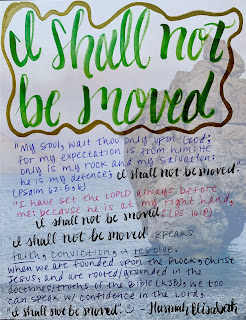 I shall not
be moved
"My soul, wait thou only upon God;
for my expectation is from him. He
only is my rock and my salvation:
he is my defence; I shall not be moved."
(Psalm 62:5-6)
"I have set the LORD always before
me: because he is at my right hand,
I shall not be moved." (Ps. 16:8)
I shall not be moved speaks
faith, conviction, & resolve.
When we are founded upon the Rock, Christ
Jesus, and are rooted/grounded in the
doctrines/truths of the Bible (KJB), we too
can speak w/ confidence in the Lord,
"I shall not be moved". :) - Hannah Elisabeth